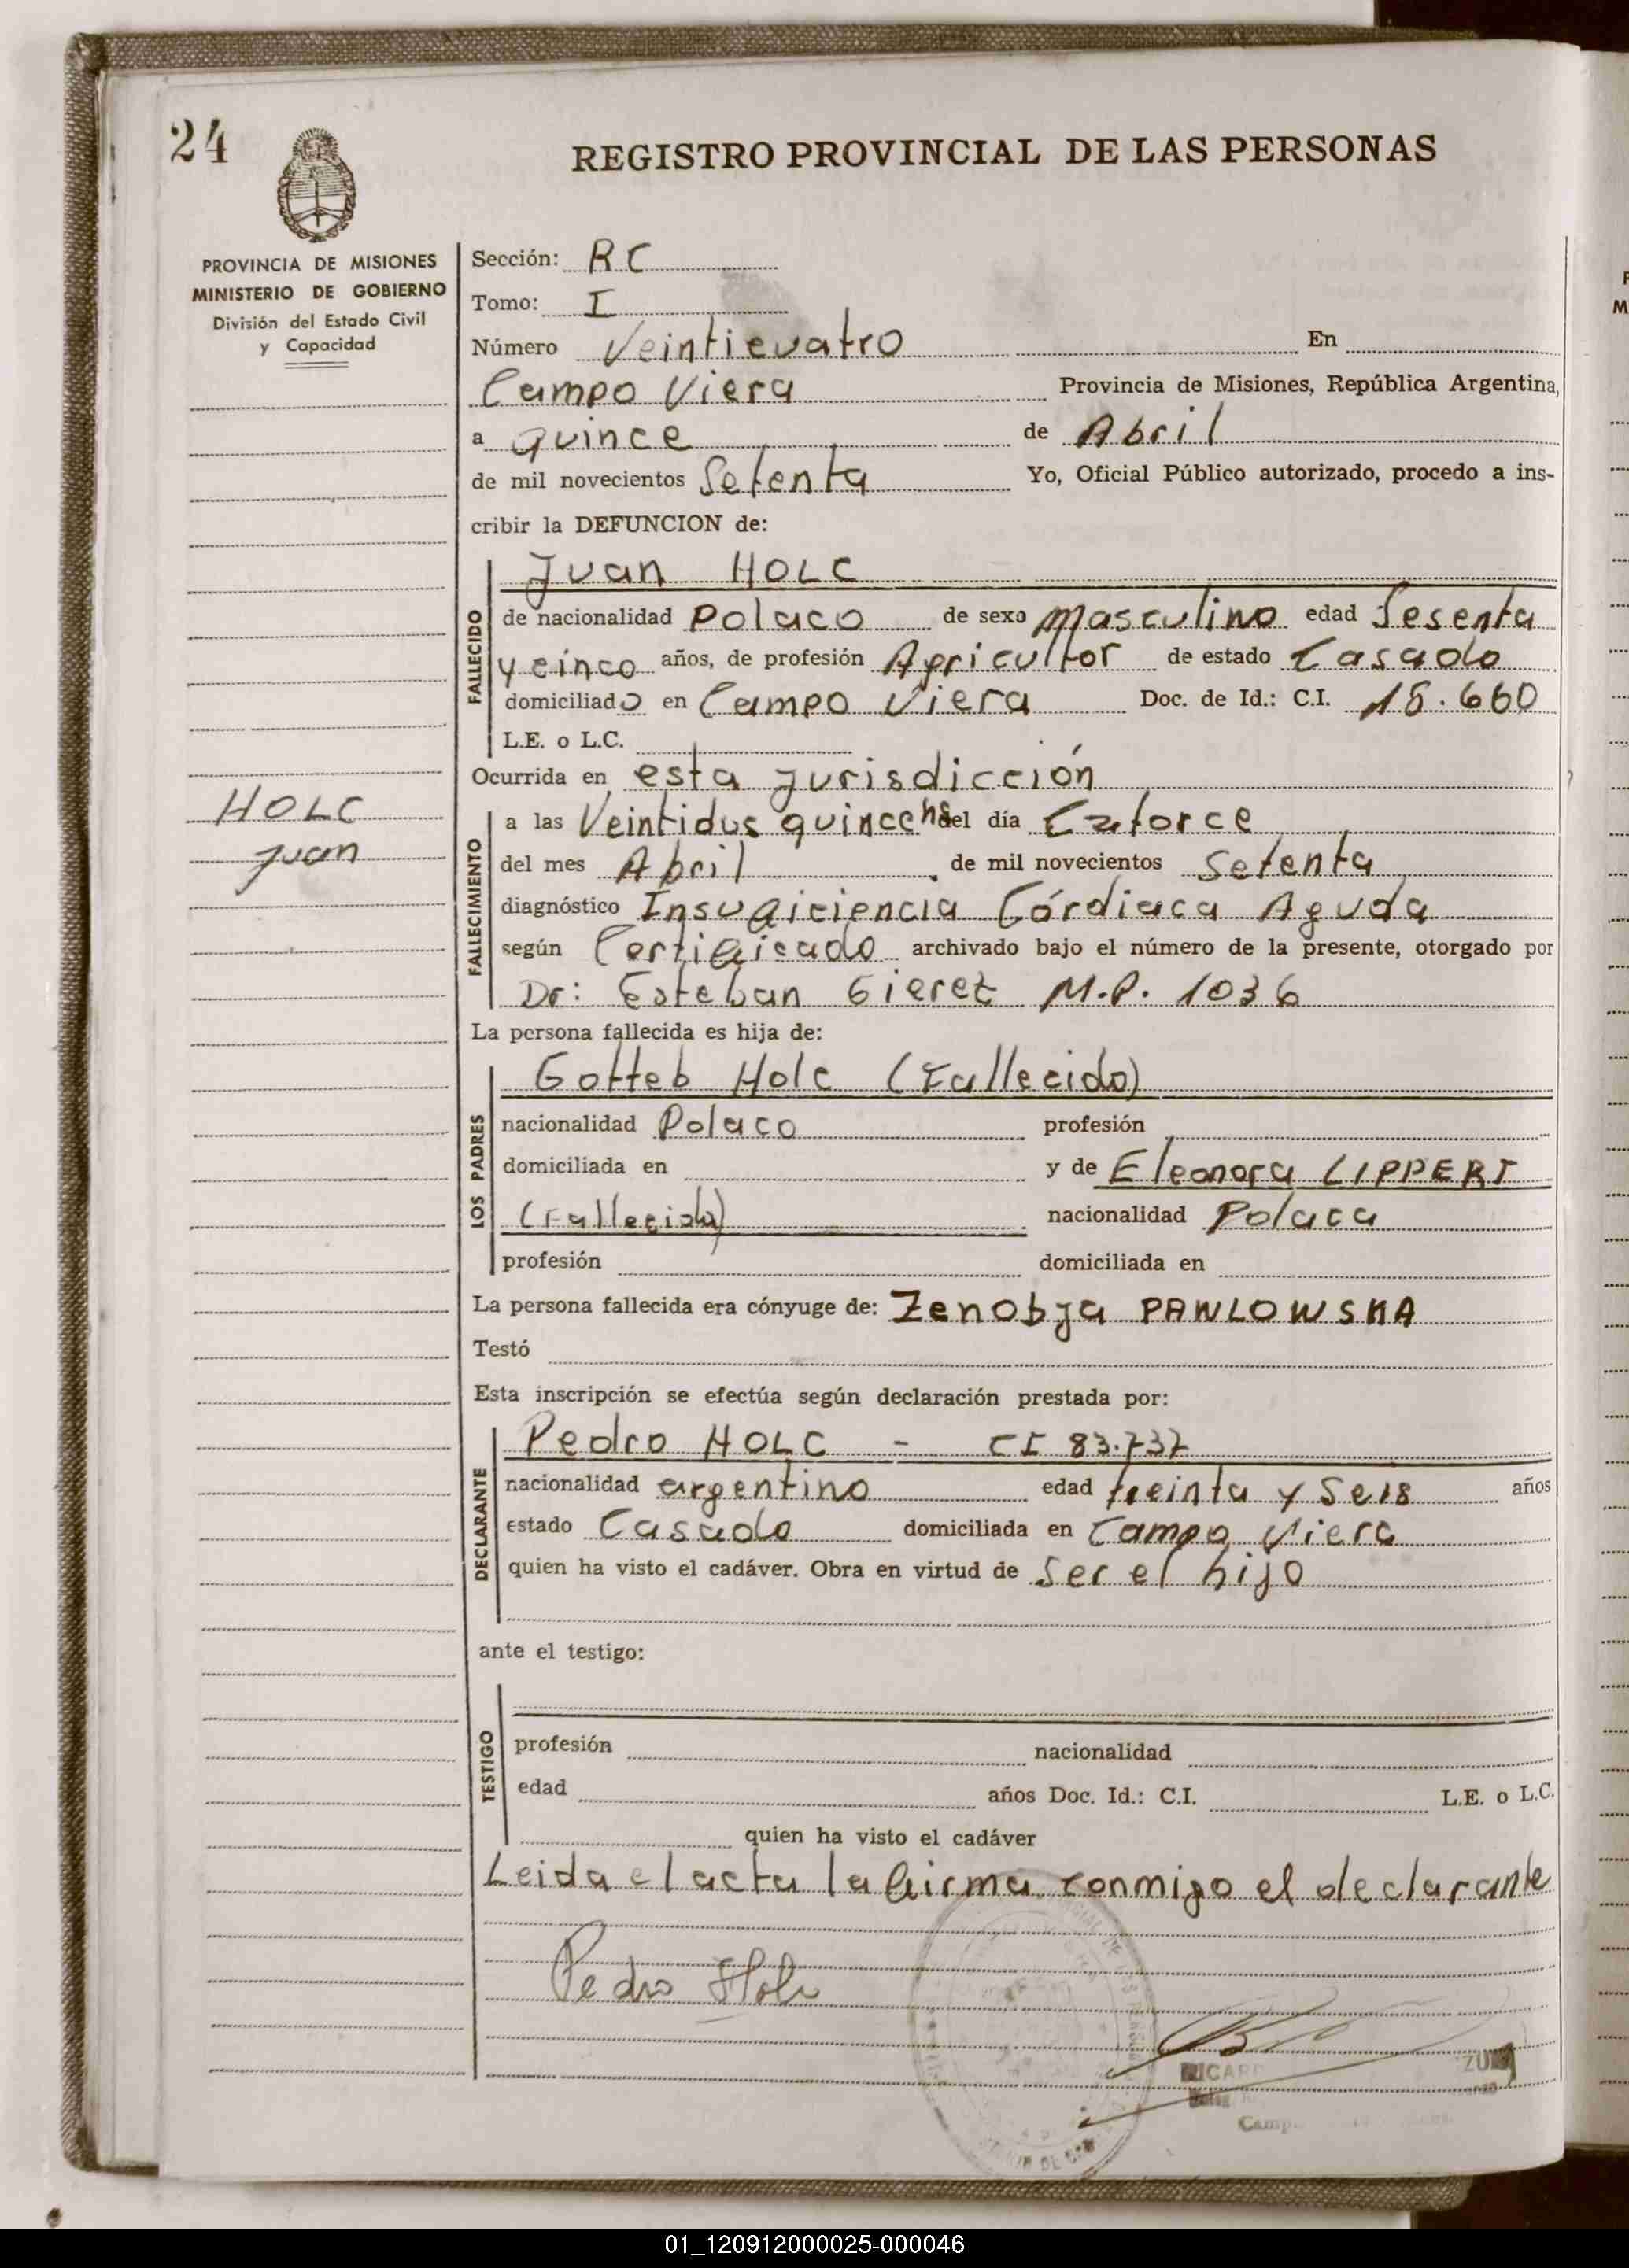 24
REGISTRO PROVINCIAL DE LAS PERSONAS
PROVINCIA DE MISIONES
MINISTERIO DE GOBIERNO
División del Estado Civil
y Capacidad
HOLC
Juan
Sección: RC
Tomo: I
Número Veinticuatro En
Campo Viera Provincia de Misiones, República Argentina,
a quince de Abril
de mil novecientos Setenta Yo, Oficial Público autorizado, procedo a ins-
cribir la DEFUNCION de:
FALLECIDO
Juan HOLC
de nacionalidad Polaco de sexo Masculino edad Sesenta
y cinco años, de profesión Agricultor de estado Casado
domiciliado en Campo Viera Doc. de Id.: C.I. 15.660
L.E. o L.C.
Ocurrida en esta jurisdicción
FALLECIMIENTO
a las Veintidos quince hs del día Catorce
del mes Abril de mil novecientos Setenta
diagnóstico Insuficiencia Córdiaca Aguda
según Certificado archivado bajo el número de la presente, otorgado por
Dr: Esteban Gieret M.P. 1036
La persona fallecida es hija de:
LOS PADRES
Gotteb Holc (Fallecido)
nacionalidad Polaco profesión
domiciliada en y de Eleonora LIPPERT
(Fallecida) nacionalidad Polaca
profesión domiciliada en
La persona fallecida era cónyuge de: Zenobja PAWLOWSKA
Testó
Esta inscripción se efectúa según declaración prestada por:
DECLARANTE
Pedro HOLC - CI 83.737
nacionalidad argentino edad treinta y Seis años
estado Casado domiciliada en Campo Viera
quien ha visto el cadáver. Obra en virtud de Ser el hijo
ante el testigo:
TESTIGO
profesión nacionalidad
edad años Doc. Id.: C.I. L.E. o L.C.
quien ha visto el cadáver
Leida el acta la firma conmigo el declarante
Pedro Holc
01_120912000025-000046